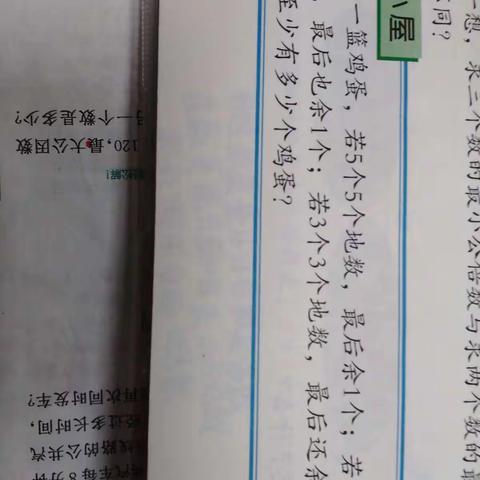 想，求三个数的最小公倍数与求两个数的最
同？
小屋
一篮鸡蛋，若5个5个地数，最后余1个；若
，最后也余1个；若3个3个地数，最后还余
至少有多少个鸡蛋？
汽车每8分钟
线路的公共汽
经过多长时间，
再次同时发车？
松解！
120，最大公因数
一个数是多少？